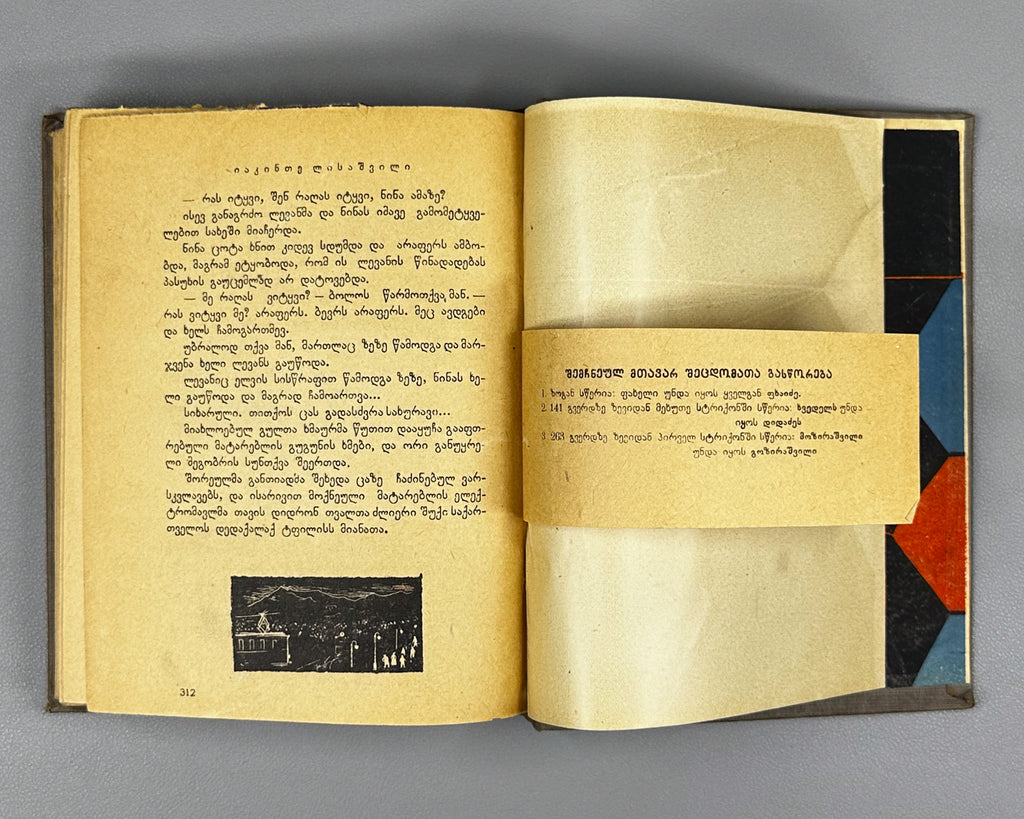 იაკინთე ლისაშვილი
— რას იტყვი, შენ რაღას იტყვი, ნინა ამაზე?
ისევ განაგრძო ლევანმა და ნინას იმავე გამომეტყვე-
ლებით სახეში მიაჩერდა.
ნინა ცოტა ხნით კიდევ სდუმდა და არაფერს ამბო-
ბდა, მაგრამ ეტყობოდა, რომ ის ლევანის წინადადებას
პასუხის გაუცემლად არ დატოვებდა.
— მე რაღას ვიტყვი? — ბოლოს წარმოთქვა მან. —
რას ვიტყვი მე? არაფერს. ბევრს არაფერს. მეც ავდგები
და ხელს ჩამოგართმევ.
უბრალოდ თქვა მან, მართლაც ზეზე წამოდგა და მარ-
ჯვენა ხელი ლევანს გაუწოდა.
ლევანიც ელვის სისწრაფით წამოდგა ზეზე, ნინას ხე-
ლი გაუწოდა და მაგრად ჩამოართვა...
სიხარული. თითქოს ცას გადასძვრა სახურავი...
მიახლოებულ გულთა ხმაურმა წუთით დააყუჩა გააფთ-
რებული მატარებლის გუგუნის ხმები, და ორი განუყრე-
ლი მეგობრის სუნთქვა შეერთდა.
შორეულმა განთიადმა შეხედა ცაზე ჩაძინებულ ვარ-
სკვლავებს, და ისარივით მოქნეული მატარებლის ელექ-
ტრომავლმა თავის დიდრონ თვალთა ძლიერი შუქი საქარ-
თველოს დედაქალაქ ტფილისს მიანათა.
312
შემჩნეულ მთავარ შეცდომათა გასწორება
1. ზოგან სწერია: ფახელი უნდა იყოს ყველგან ფხაიძე.
2. 141 გვერდზე ზევიდან მეხუთე სტრიქონში სწერია: ხვედელს უნდა
იყოს დიდაძეს
3. 263 გვერდზე ზევიდან პირველ სტრიქონში სწერია: მოზირაშვილი
უნდა იყოს გოზირაშვილი